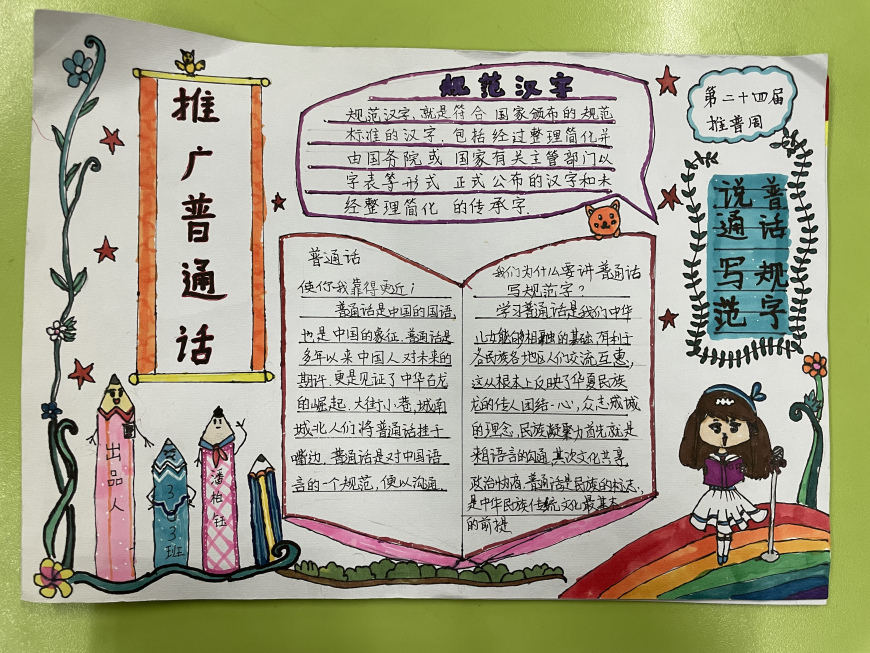 推广普通话
规范汉字
规范汉字,就是符合国家颁布的规范
标准的汉字,包括经过整理简化并
由国务院或国家有关主管部门以
字表等形式正式公布的汉字和未
经整理简化的传承字.
第二十四届
推普周
说普
通话
写规
范字
普通话
使你我靠得更近!
普通话是中国的国语,
也是中国的象征,普通话是
多年以来中国人对未来的
期许.更是见证了中华古龙
的崛起.大街小巷,城南
城北人们将普通话挂于
嘴边,普通话是对中国语
言的一个规范,便以沟通.
我们为什么要讲普通话
写规范字?
学习普通话是我们中华
儿女能够相融的基础,有利于
各民族各地区人们交流互惠,
这从根本上反映了华夏民族
龙的传人团结一心,众志成诚
的理念,民族凝聚力首先就是
来自语言的沟通,其次文化共享,
政治协商,普通话是民族的标志,
是中华民族传统文化最基本
的前提
出品人
303班
潘柏钰